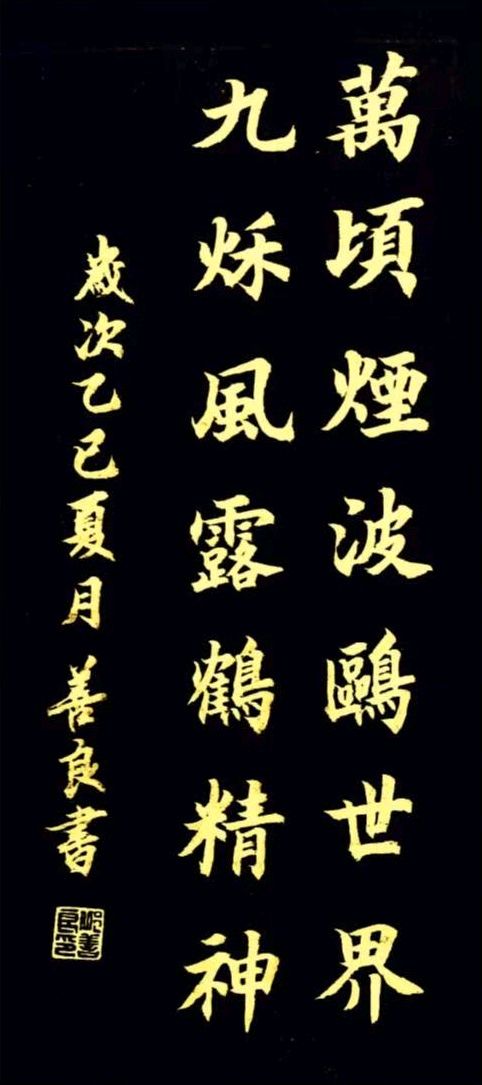 萬頃煙波鷗世界
九秌風露鶴精神
歲次乙巳夏月 善良書